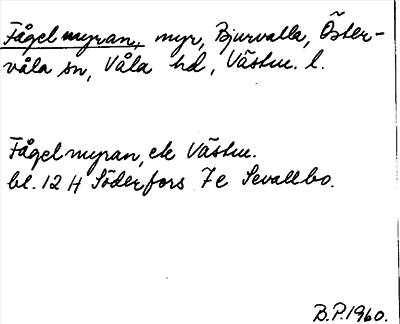 Fågelmyran, myr, Bjurvalla, Öster-
våla sn, Våla hd, Västm. l.
Fågelmyran, ek Västm.
bl. 12 H Söderfors 7e Sevallbo.
B.P. 1960.